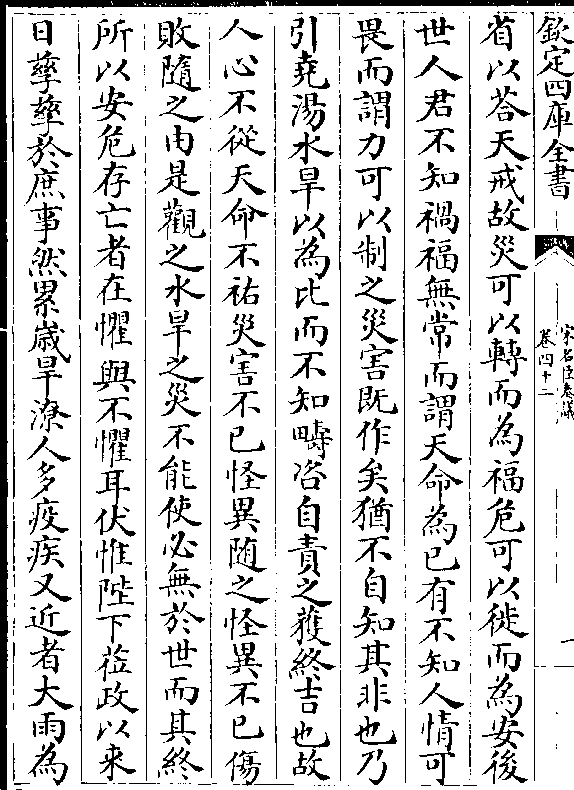 欽定四庫全書
宋名臣奏議
卷四十二
一
省以荅天戒故災可以轉而為福危可以徙而為安後
世人君不知禍福無常而謂天命為已有不知人情可
畏而謂力可以制之災害既作矣猶不自知其非也乃
引堯湯水旱以為比而不知疇咨自責之獲終吉也故
人心不從天命不祐災害不已怪異随之怪異不已傷
敗隨之由是觀之水旱之災不能使必無於世而其終
所以安危存亡者在懼與不懼耳伏惟陛下莅政以来
日孳孳於庶事然累歳旱潦人多疫疾又近者大雨為